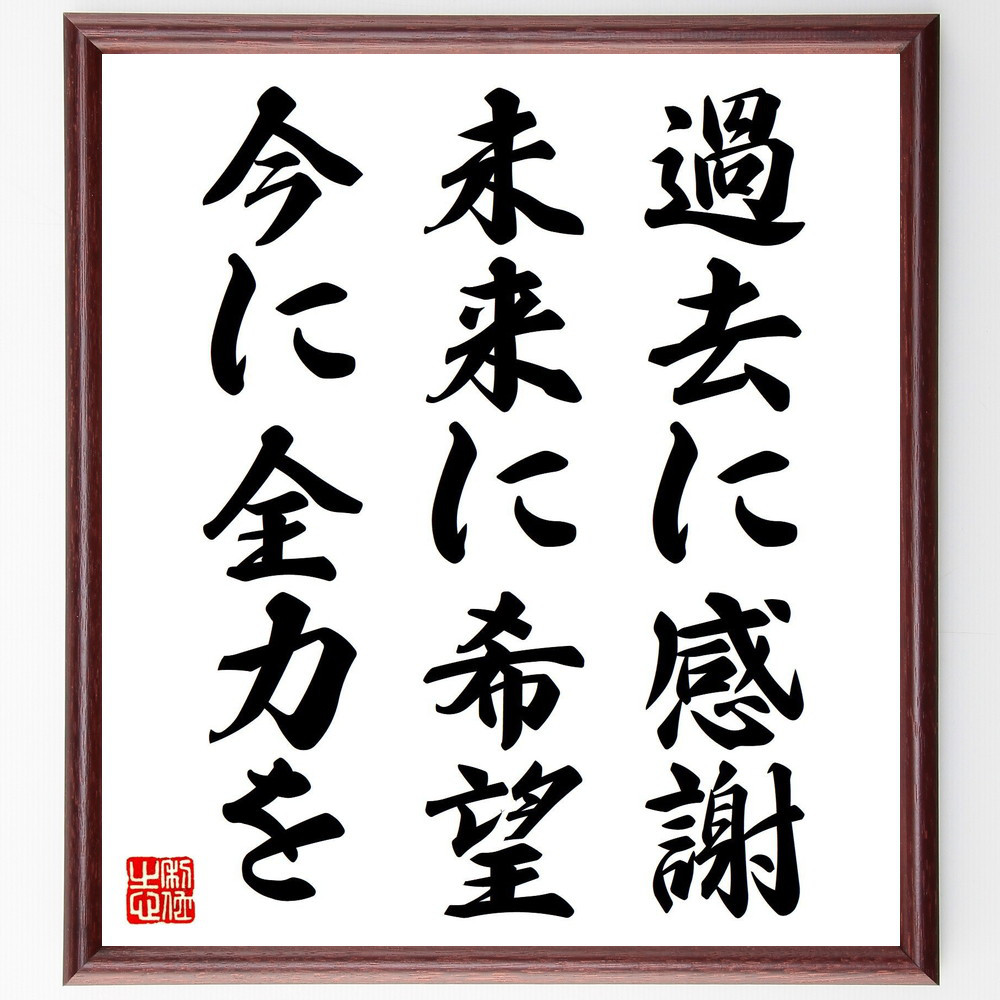 過去に感謝
未来に希望
今に全力を